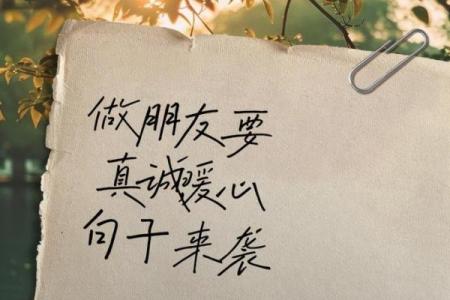 做朋友要
真诚暖心
句子来袭